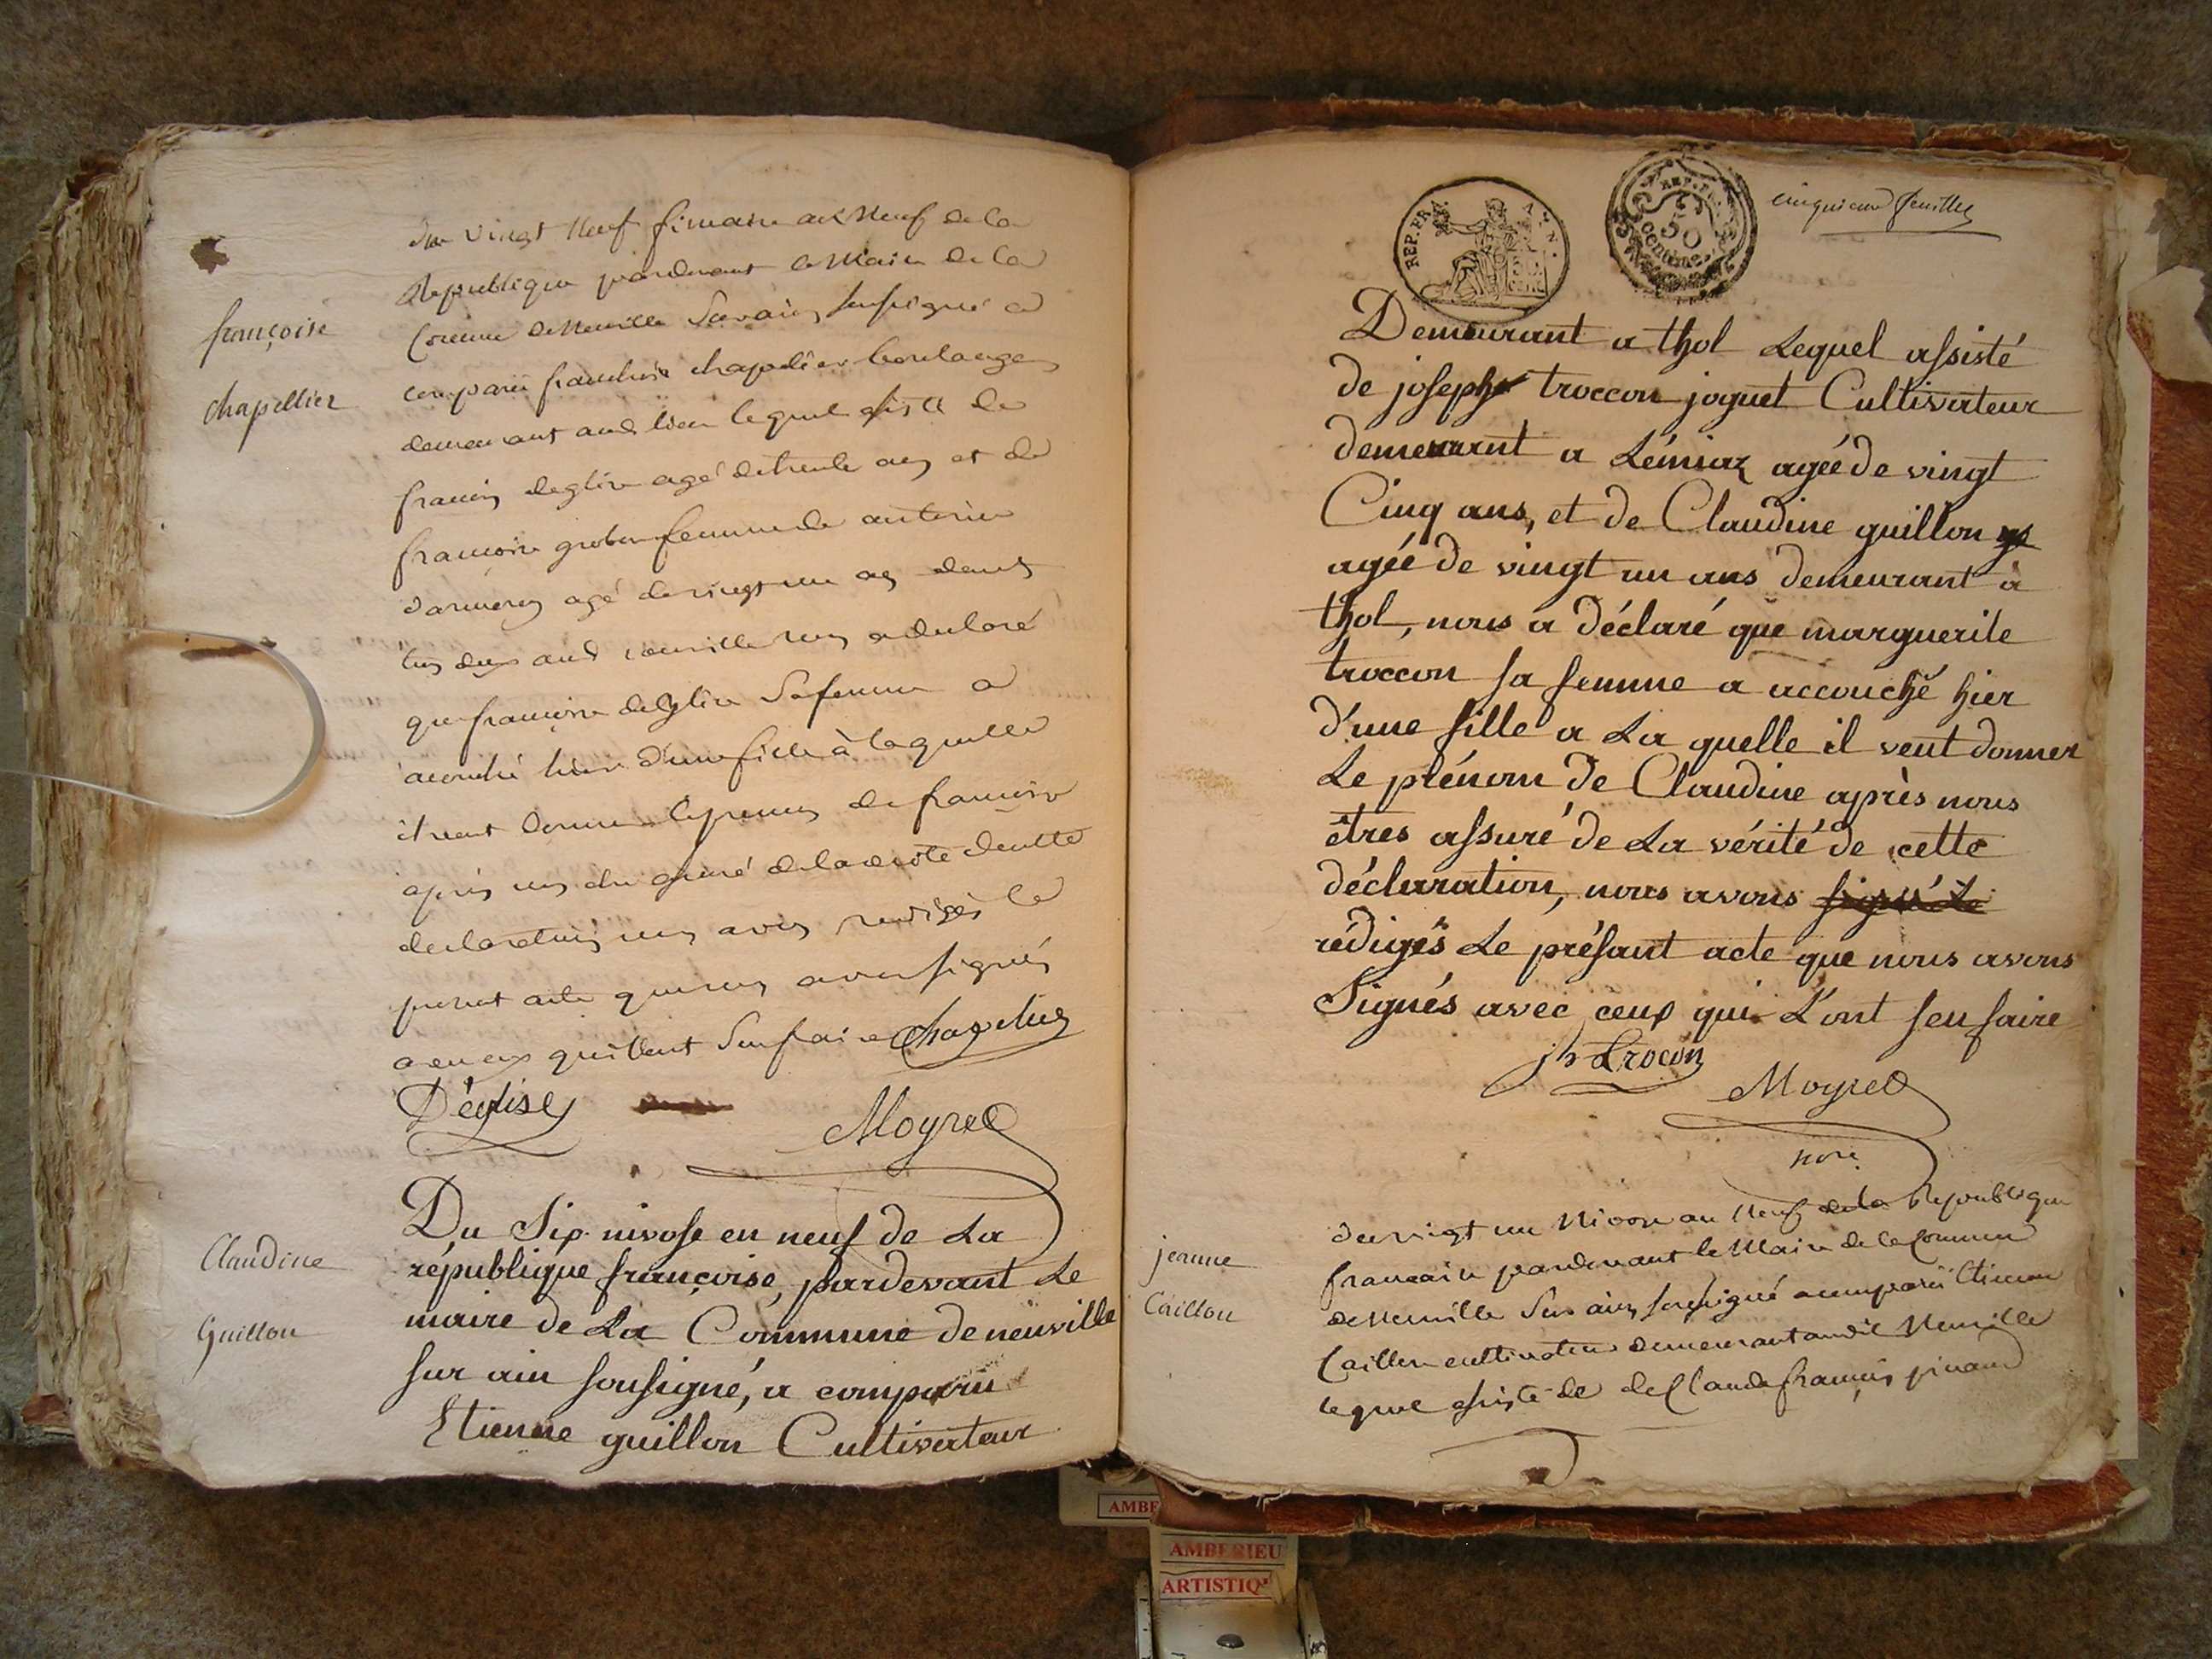 françoise
chapellier
Du vingt Neuf frimaire an Neuf de la
Republique pardevant le Maire de la
Comune de Neuville Sur ain Sousigné a
comparü chapelier boulanger
demeurant aud lieu lequel assisté de
francois deglise agé de trente ans et de
francoise femme de antoine
agé de vingt un ans
tous deux aud neuville nous a declaré
que francoise deglise Sa femme a
acouché hier d'une fille à laquelle
il veut donner le prenom de francoise
après nous être assuré de la verité de cette
declaration nous avons redigés le
present acte que nous avons signés
avec ceux qui l'ont Seu faire Chapelier
D'église
Moyret
Claudine
Guillon
Du Six nivose en neuf de La
république françoise, pardevant Le
maire de La Commune de neuville
sur ain sousigné, a comparu
Etienne guillon Cultivateur
REP. FRA.
AN.
REP. FRA.
50
centime
cinquieme feuillet
Demeurant a thol Lequel assisté
de joseph troccon joguet Cultivateur
demeurant a Lémiaz agéé de vingt
Cinq ans, et de Claudine guillon
agéé de vingt un ans demeurant à
thol, nous a déclaré que marguerite
troccon sa femme a accouché hier
d'une fille a La quelle il veut donner
Le prénom de Claudine après nous
êtres assuré de La vérité de cette
déclaration, nous avons signé Le
rédigés Le présant acte que nous avons
Signés avec ceux qui L'ont seu faire
jh trocon
Moyret
jeanne
Caillou
Du vingt un Nivose an Neuf de la Republique
francaise pardevant le Maire de la Commune
de Neuville Sur ain Sousigné a comparü Etienne
Caillon cultivateur demeurant audit Neuville
lequel assisté de de Claude françois
AMBE
AMBERIEU
ARTISTIQ